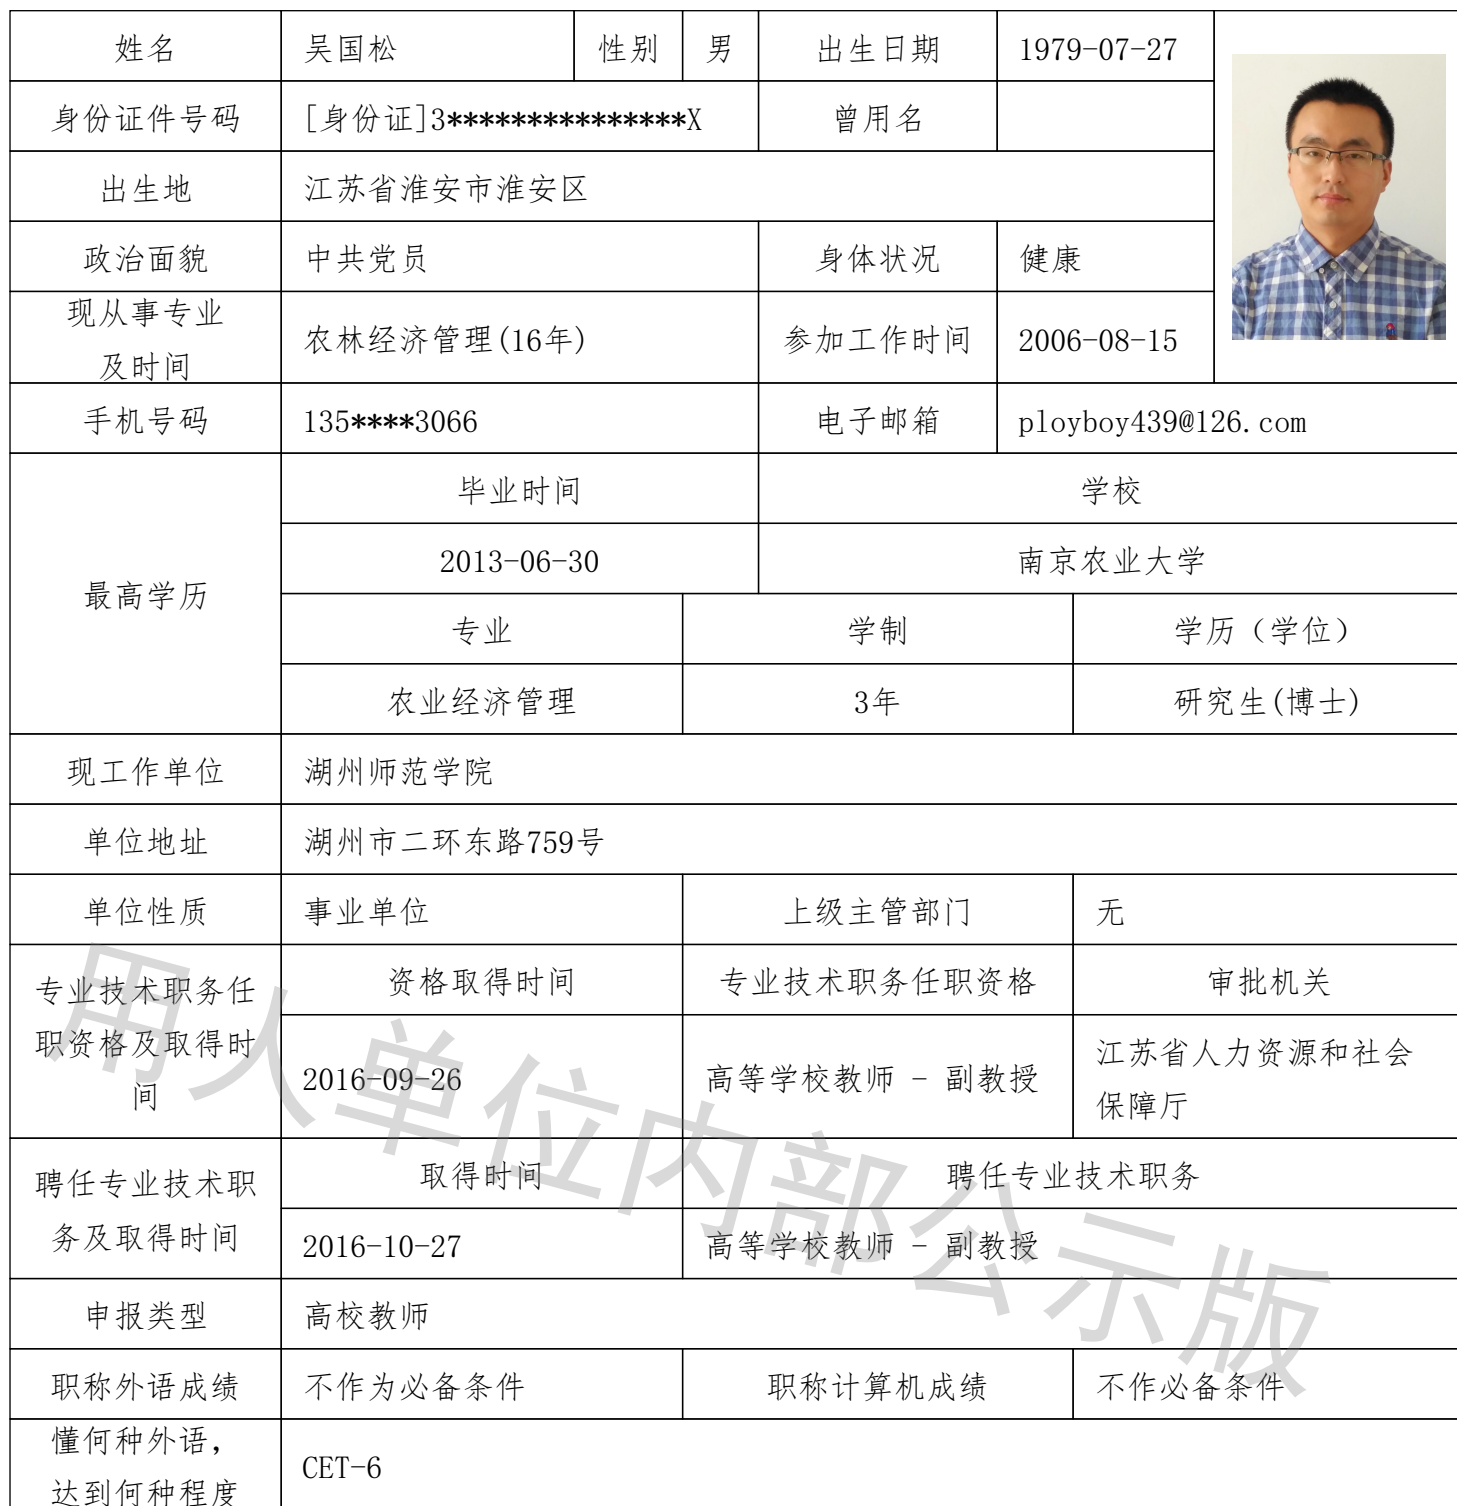 姓名 吴国松 性别 男 出生日期 1979-07-27
身份证件号码 [身份证]3***************X 曾用名
出生地 江苏省淮安市淮安区
政治面貌 中共党员 身体状况 健康
现从事专业
及时间
农林经济管理(16年) 参加工作时间 2006-08-15
手机号码 135****3066 电子邮箱 ployboy439@126.com
最高学历
毕业时间 学校
2013-06-30 南京农业大学
专业 学制 学历（学位）
农业经济管理 3年 研究生(博士)
现工作单位 湖州师范学院
单位地址 湖州市二环东路759号
单位性质 事业单位 上级主管部门 无
专业技术职务任
职资格及取得时
间
资格取得时间 专业技术职务任职资格 审批机关
2016-09-26 高等学校教师 - 副教授 江苏省人力资源和社会
保障厅
聘任专业技术职
务及取得时间
取得时间 聘任专业技术职务
2016-10-27 高等学校教师 - 副教授
申报类型 高校教师
职称外语成绩 不作为必备条件 职称计算机成绩 不作必备条件
懂何种外语，
达到何种程度
CET-6
用人单位内部公示版